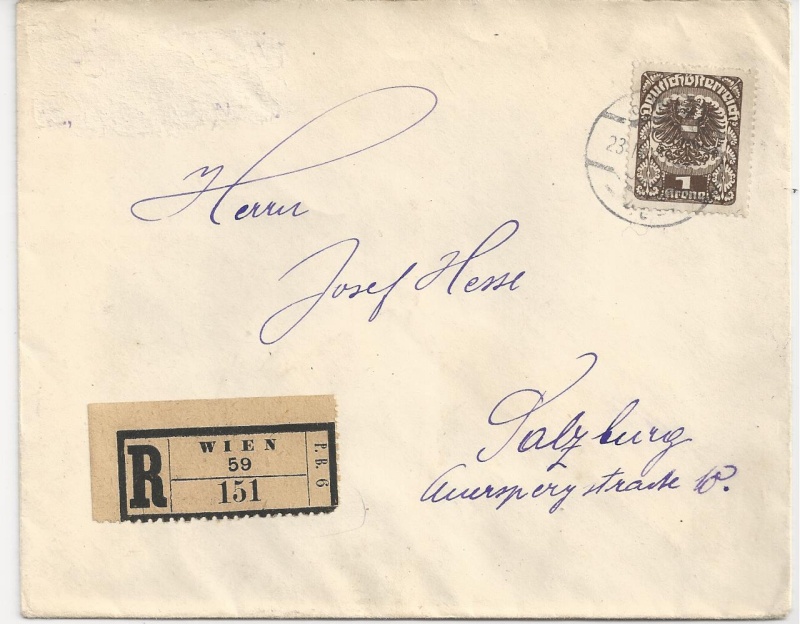 Deutschösterreich
1
Krone
23.
Herrn
Josef Hesse
Salzburg
Auerspergstrasse 10.
R
WIEN
59
151
P. B. 6